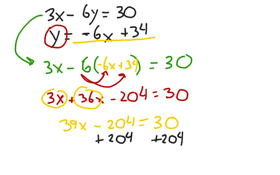 3x - 6y = 30
y = -6x + 34
3x - 6(-6x+34) = 30
3x + 36x - 204 = 30
39x - 204 = 30
+204 +204